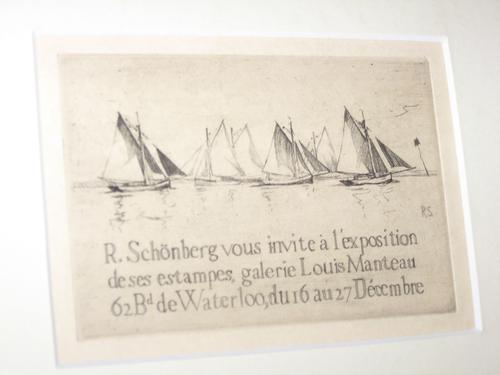 R.S.
R. Schönberg vous invite à l'exposition
de ses estampes, galerie Louis Manteau
62 Bd de Waterloo, du 16 au 27 Décembre